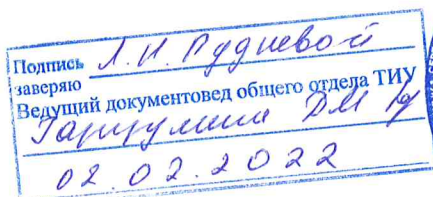 Подпись Л.Н. Рудневой
заверяю
Ведущий документовед общего отдела ТИУ
ДМ
02.02.2022